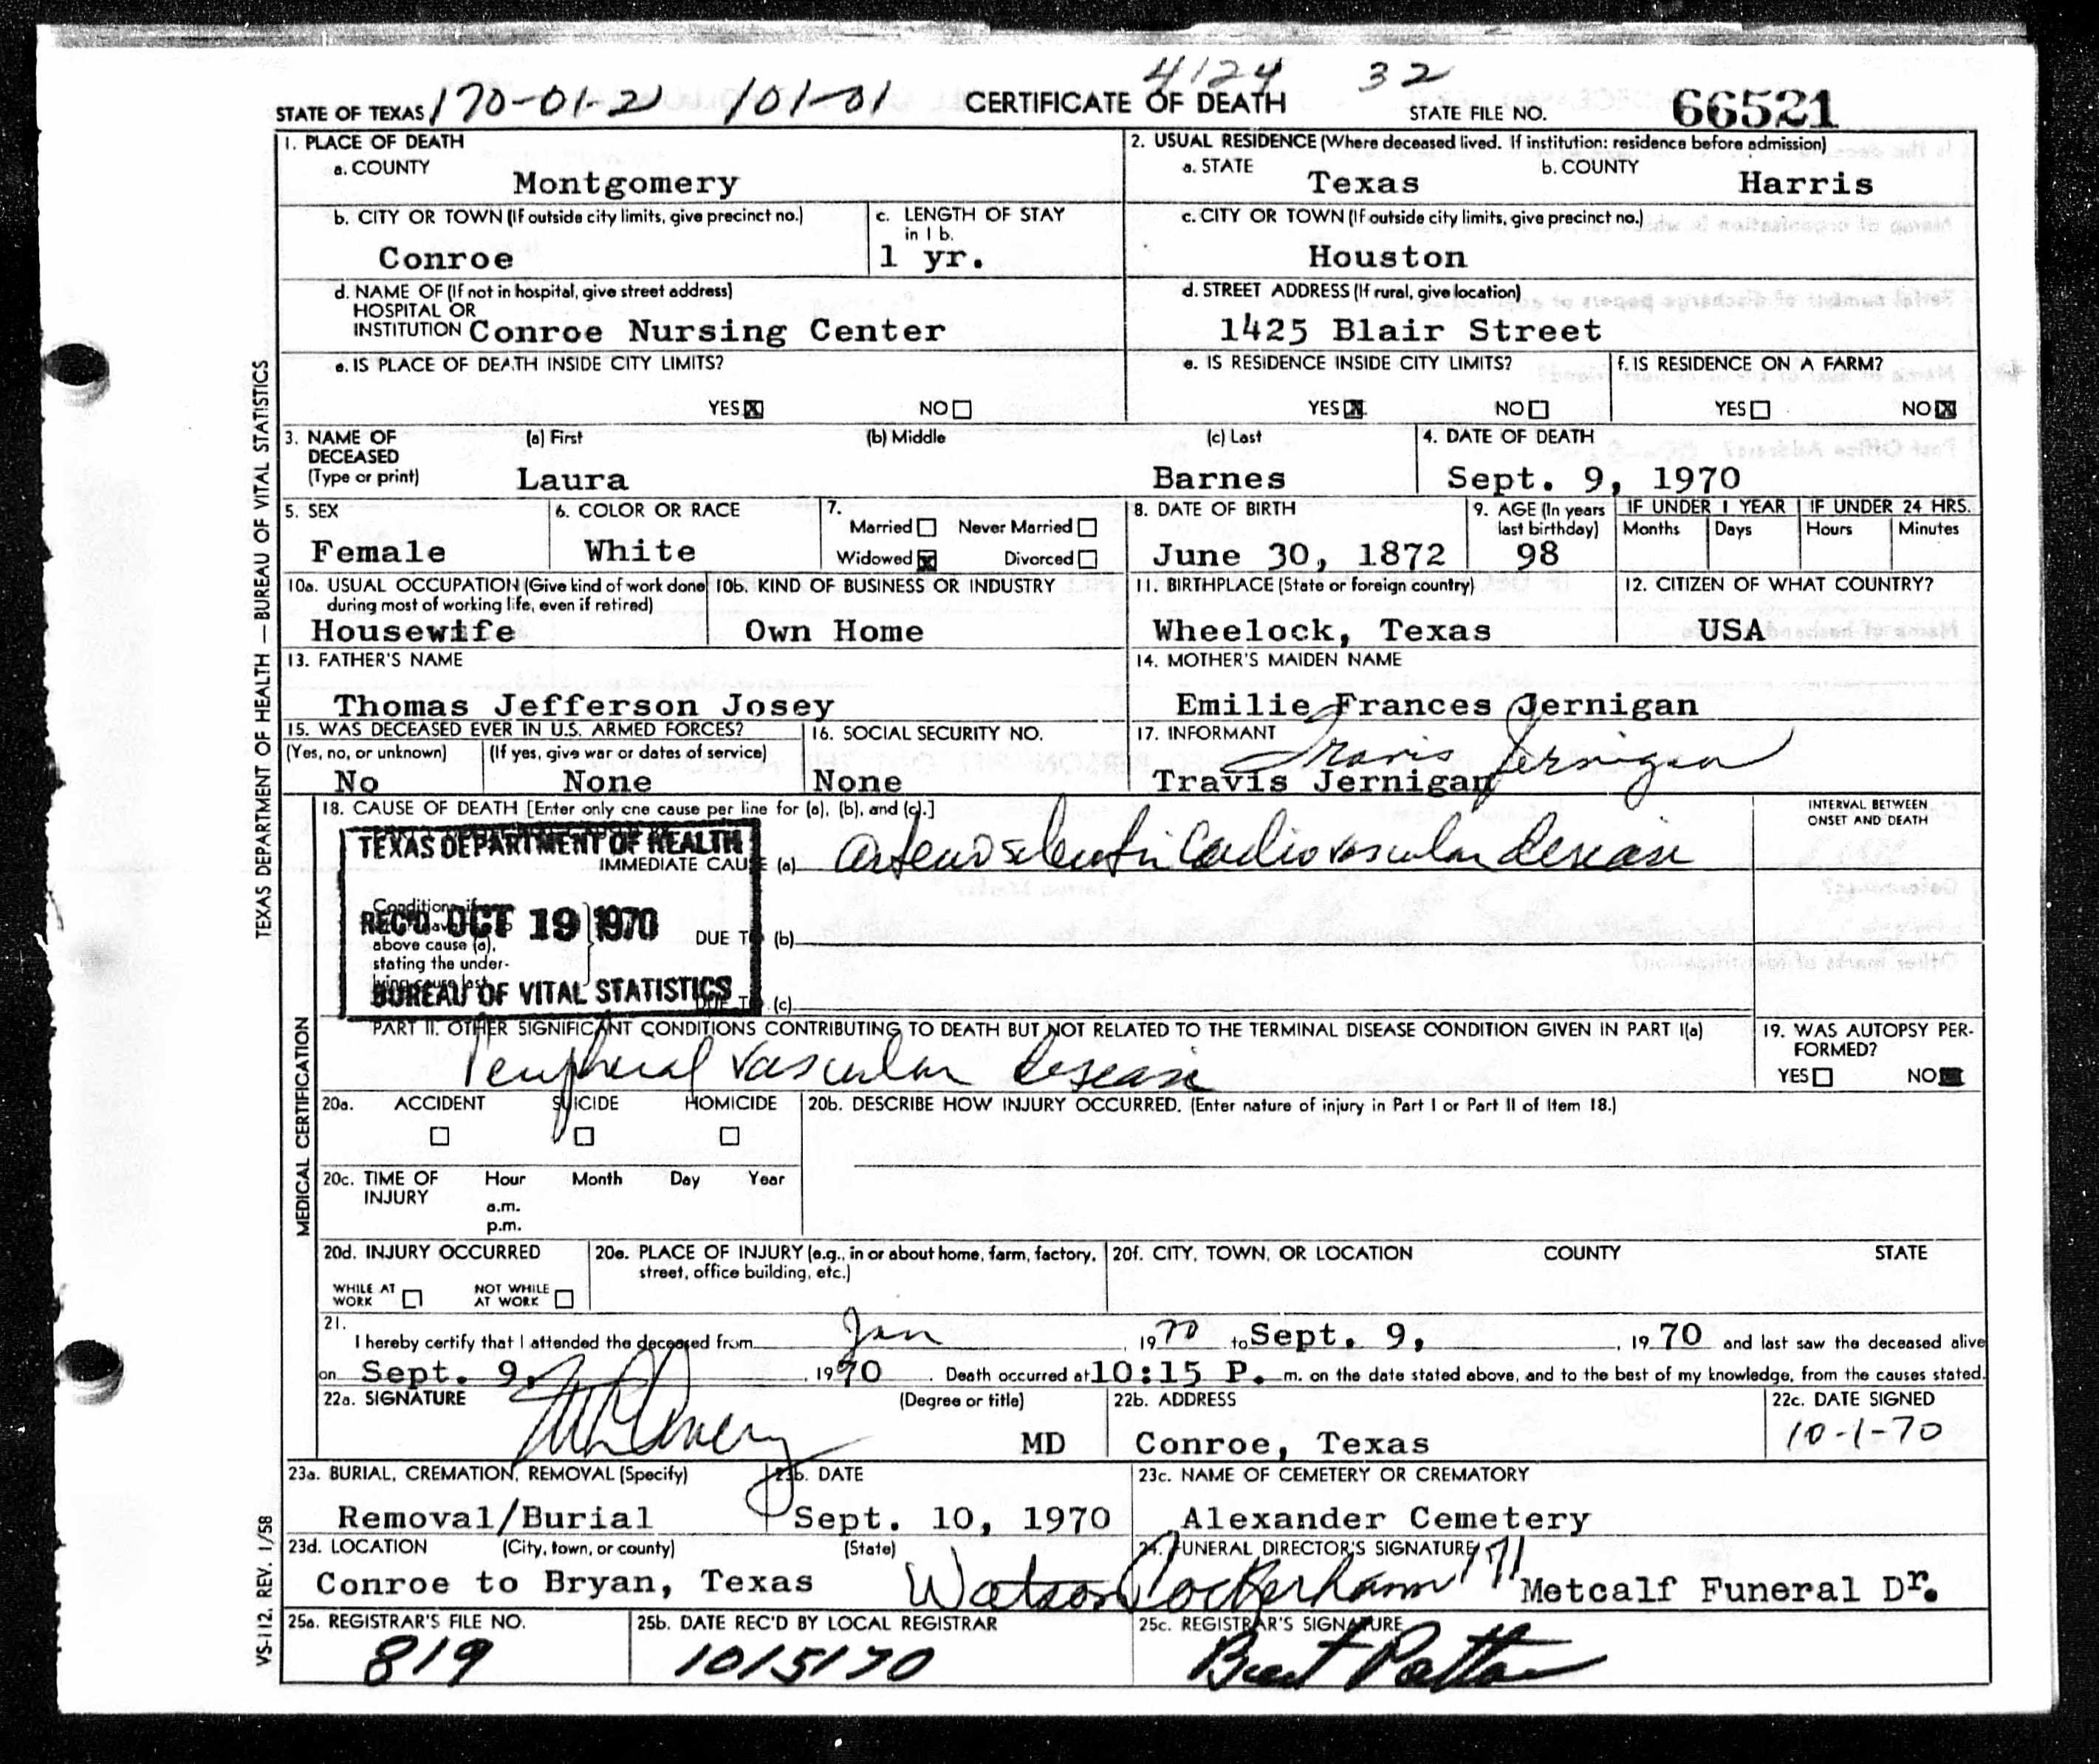 4124 32
STATE OF TEXAS 170-01-2 101-01 CERTIFICATE OF DEATH STATE FILE NO. 66521
1. PLACE OF DEATH
a. COUNTY
Montgomery
2. USUAL RESIDENCE (Where deceased lived. If institution: residence before admission)
a. STATE b. COUNTY
Texas Harris
b. CITY OR TOWN (If outside city limits, give precinct no.)
Conroe
c. LENGTH OF STAY
in 1 b.
1 yr.
c. CITY OR TOWN (If outside city limits, give precinct no.)
Houston
d. NAME OF (If not in hospital, give street address)
HOSPITAL OR
INSTITUTION Conroe Nursing Center
d. STREET ADDRESS (If rural, give location)
1425 Blair Street
e. IS PLACE OF DEATH INSIDE CITY LIMITS?
YES☒ NO☐
e. IS RESIDENCE INSIDE CITY LIMITS?
YES☒ NO☐
f. IS RESIDENCE ON A FARM?
YES☐ NO☒
3. NAME OF
DECEASED
(Type or print)
(a) First (b) Middle (c) Last
Laura Barnes
4. DATE OF DEATH
Sept. 9, 1970
5. SEX
Female
6. COLOR OR RACE
White
7.
Married☐ Never Married☐
Widowed☒ Divorced☐
8. DATE OF BIRTH
June 30, 1872
9. AGE (In years
last birthday)
98
IF UNDER 1 YEAR
Months Days
IF UNDER 24 HRS.
Hours Minutes
10a. USUAL OCCUPATION (Give kind of work done
during most of working life, even if retired)
Housewife
10b. KIND OF BUSINESS OR INDUSTRY
Own Home
11. BIRTHPLACE (State or foreign country)
Wheelock, Texas
12. CITIZEN OF WHAT COUNTRY?
USA
13. FATHER'S NAME
Thomas Jefferson Josey
14. MOTHER'S MAIDEN NAME
Emilie Frances Jernigan
15. WAS DECEASED EVER IN U.S. ARMED FORCES?
(Yes, no, or unknown) (If yes, give war or dates of service)
No None
16. SOCIAL SECURITY NO.
None
17. INFORMANT
Travis Jernigan
Travis Jernigan
MEDICAL CERTIFICATION
18. CAUSE OF DEATH [Enter only one cause per line for (a), (b), and (c).]
INTERVAL BETWEEN
ONSET AND DEATH
TEXAS DEPARTMENT OF HEALTH
IMMEDIATE CAUSE (a) arteriosclerotic Cardiovascular disease
Conditions, if
REC'D OCT 19 1970
above cause (a),
stating the under-
lying cause last
DUE TO (b)
BUREAU OF VITAL STATISTICS
DUE TO (c)
PART II. OTHER SIGNIFICANT CONDITIONS CONTRIBUTING TO DEATH BUT NOT RELATED TO THE TERMINAL DISEASE CONDITION GIVEN IN PART I(a)
Peripheral Vascular disease
19. WAS AUTOPSY PER-
FORMED?
YES☐ NO☒
20a. ACCIDENT SUICIDE HOMICIDE
☐ ☐ ☐
20b. DESCRIBE HOW INJURY OCCURRED. (Enter nature of injury in Part I or Part II of Item 18.)
20c. TIME OF
INJURY
Hour Month Day Year
a.m.
p.m.
20d. INJURY OCCURRED
WHILE AT
WORK ☐
NOT WHILE
AT WORK ☐
20e. PLACE OF INJURY (e.g., in or about home, farm, factory,
street, office building, etc.)
20f. CITY, TOWN, OR LOCATION COUNTY STATE
21.
I hereby certify that I attended the deceased from Jan, 1970 to Sept. 9, , 19 70 and last saw the deceased alive
on Sept. 9, , 1970. Death occurred at 10:15 P. m. on the date stated above, and to the best of my knowledge, from the causes stated.
22a. SIGNATURE (Degree or title)
MD
22b. ADDRESS
Conroe, Texas
22c. DATE SIGNED
10-1-70
23a. BURIAL, CREMATION, REMOVAL (Specify)
Removal/Burial
23b. DATE
Sept. 10, 1970
23c. NAME OF CEMETERY OR CREMATORY
Alexander Cemetery
23d. LOCATION (City, town, or county) (State)
Conroe to Bryan, Texas
24. FUNERAL DIRECTOR'S SIGNATURE
Watson Cockerham Metcalf Funeral Dr.
25a. REGISTRAR'S FILE NO.
819
25b. DATE REC'D BY LOCAL REGISTRAR
10/5/70
25c. REGISTRAR'S SIGNATURE
TEXAS DEPARTMENT OF HEALTH — BUREAU OF VITAL STATISTICS
VS-112, REV. 1/58